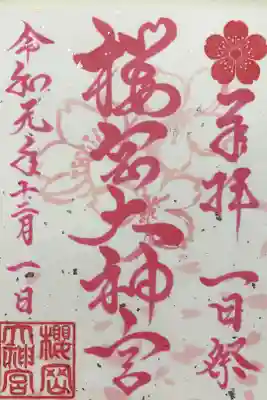 奉拝 一日祭
櫻岡大神宮
令和元年十二月一日
櫻岡大神宮